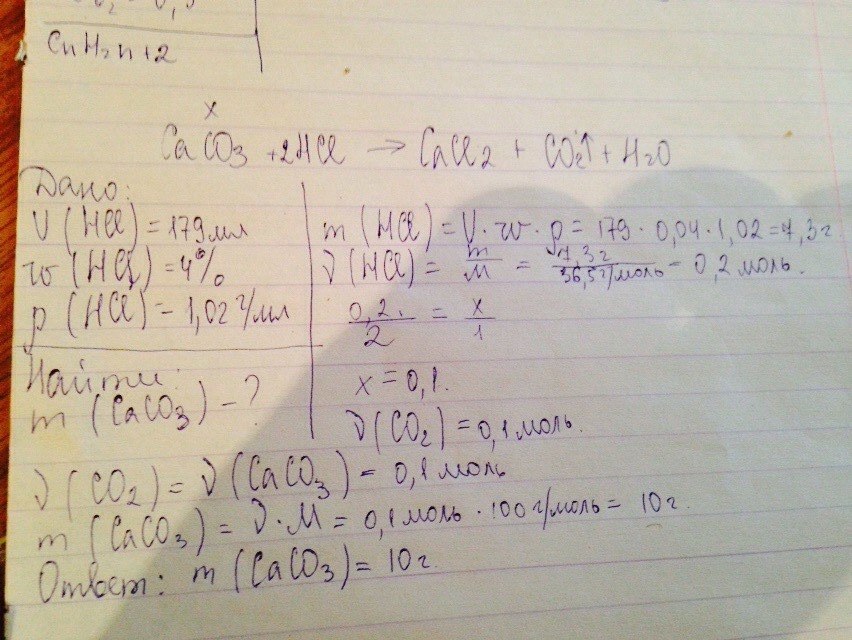 CnH2n+2
x
CaCO3 + 2HCl → CaCl2 + CO2↑ + H2O
Дано:
V (HCl) = 179 мл
w (HCl) = 4%
ρ (HCl) = 1,02 г/мл
Найти:
m (CaCO3) - ?
m (HCl) = V · w · ρ = 179 · 0,04 · 1,02 = 7,3 г
ν (HCl) = m/M = 7,3 г/36,5 г/моль = 0,2 моль.
0,2/2 = x/1
x = 0,1.
ν (CO2) = 0,1 моль.
ν (CO2) = ν (CaCO3) = 0,1 моль
m (CaCO3) = ν · M = 0,1 моль · 100 г/моль = 10 г.
Ответ: m (CaCO3) = 10 г.